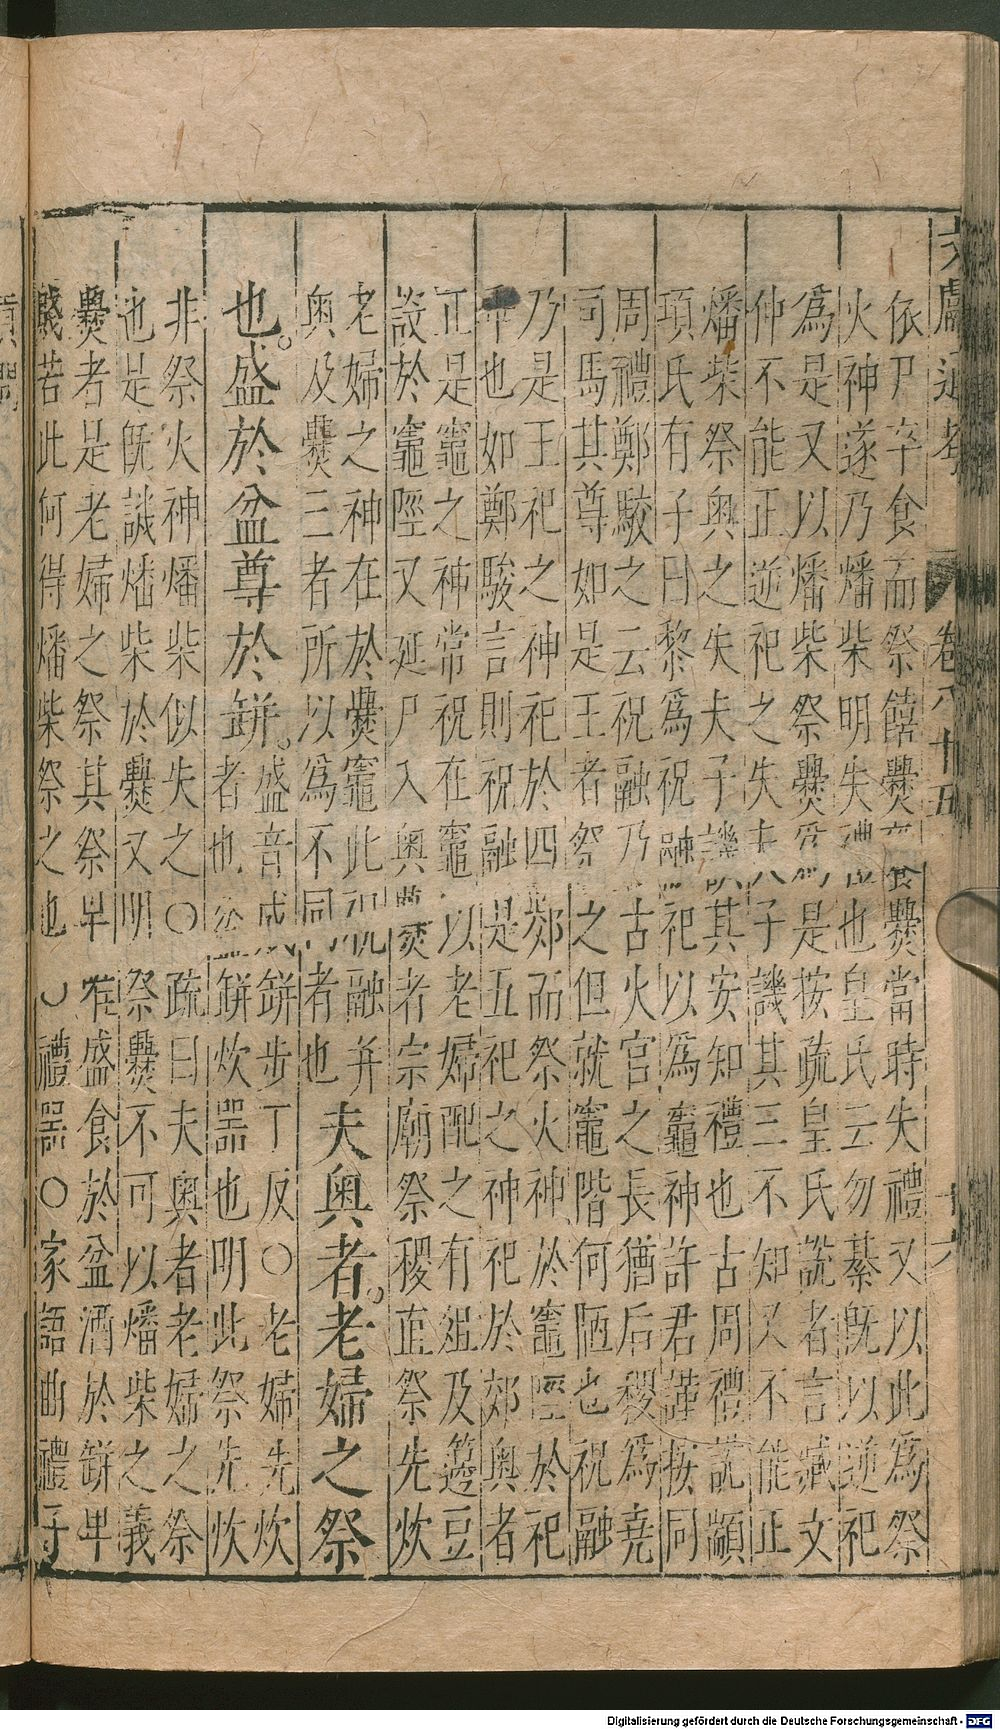 文獻通考 卷八十五 十六
依尸卒食而祭饎爨食爨當時失禮又以此為祭
火神遂乃燔柴明失禮也皇氏云勿綦既以逆祀
為是又以燔柴祭爨為是按疏皇氏說者言臧文
仲不能正逆祀之失夫子譏其三不知又不能正
燔柴祭奧之失夫子譏其安知禮也古周禮說顓
項氏有子曰黎為祝融祀以為竈神許君謹按同
周禮鄭駮之云祝融乃古火官之長猶后稷為堯
司馬其尊如是王者祭之但就竈階何陋也祝融
乃是王祀之神祀於四郊而祭火神於竈陘於祀
也如鄭駮言則祝融是五祀之神祀於郊奧者
正是竈之神常祝在竈以老婦配之有俎及籩豆
設於竈陘又延尸入奧爨者宗廟祭稷直祭先炊
老婦之神在於爨竈此祝融并
奧及爨三者所以為不同者也
夫奧者。老婦之祭
也。盛於盆尊於缾。
盛音成缾步丁反○老婦先炊
者也盆缾炊器也明此祭先炊
非祭火神燔柴似失之○疏曰夫奧者老婦之祭
也是既譏燔柴於爨又明祭爨不可以燔柴之義
爨者是老婦之祭其祭卑唯盛食於盆酒於缾卑
賤若此何得燔柴祭之也○禮器○家語曲禮子
Digitalisierung gefördert durch die Deutsche Forschungsgemeinschaft - DFG